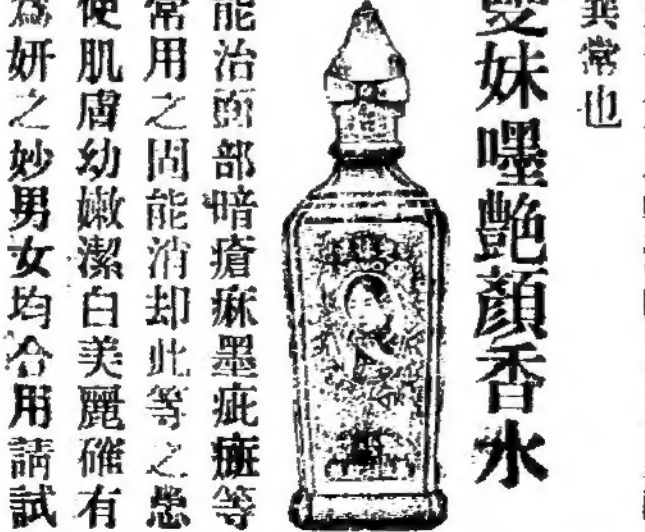 異常也
雙妹嚜艷顏香水
能治面部暗瘡痳墨疵痣等
常用之固能消却此等之患
使肌膚幼嫩潔白美麗確有
爲妍之妙男女均合用請試